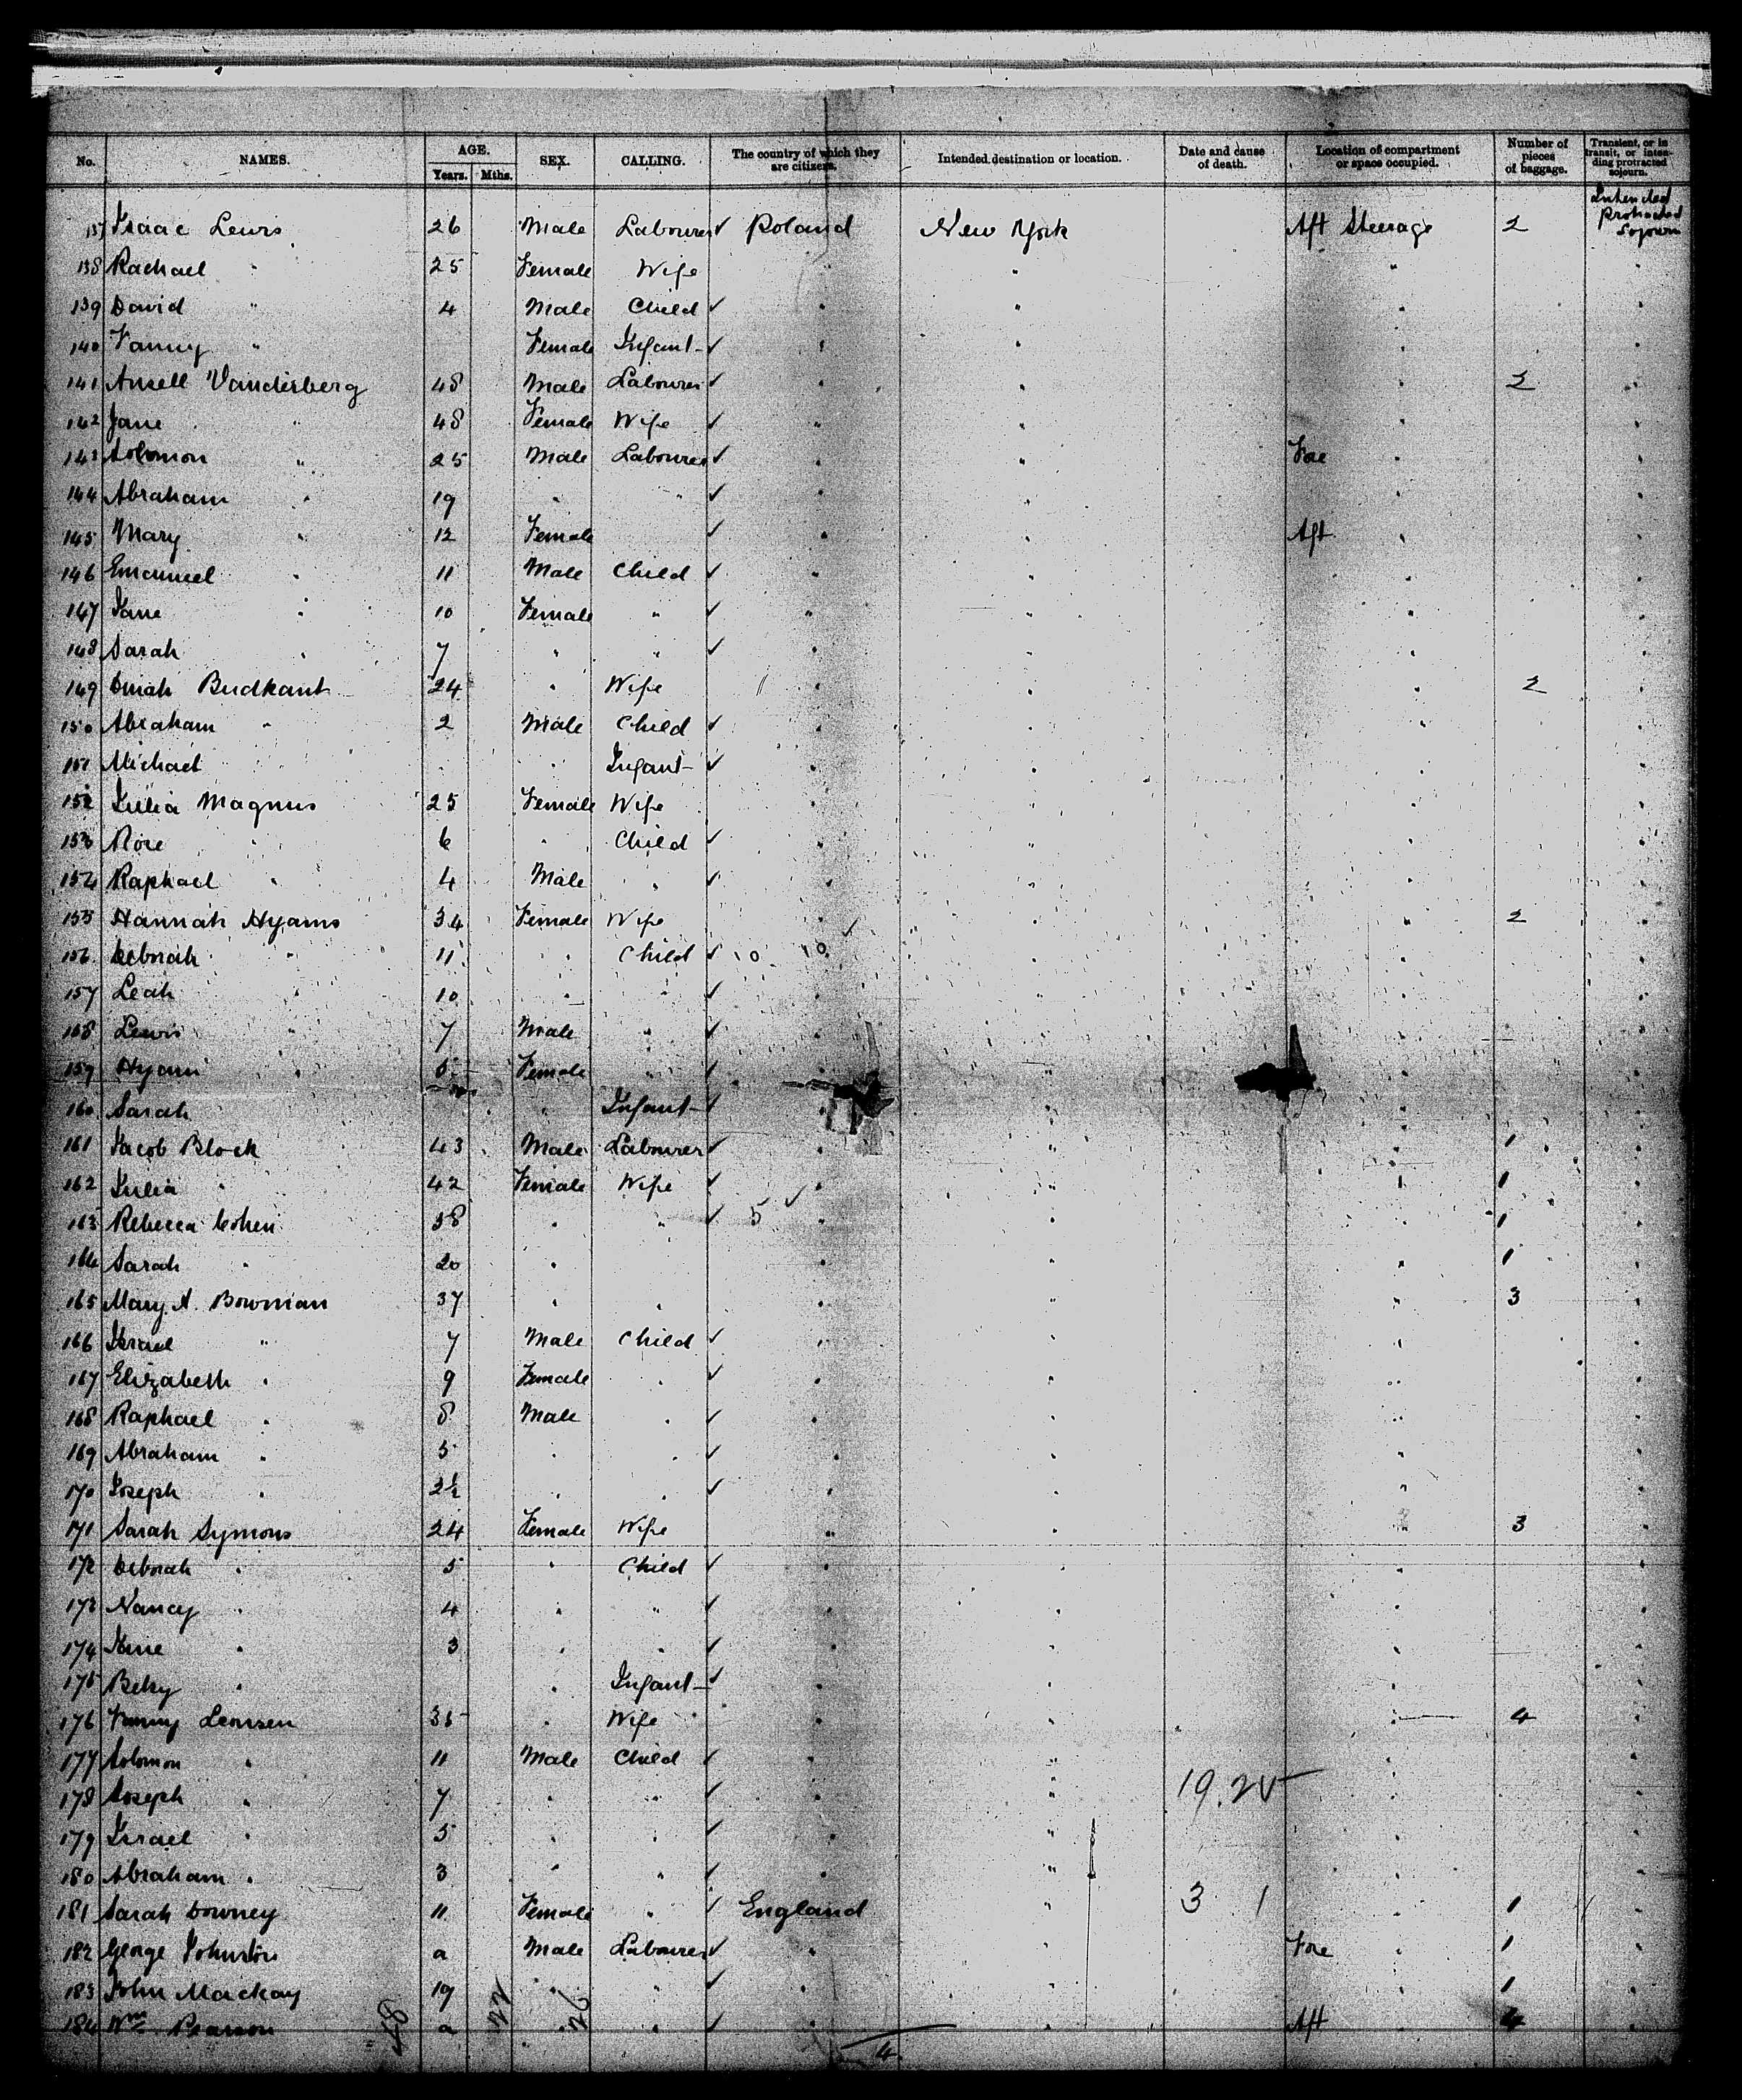 No. NAMES. AGE. Years. Mths. SEX. CALLING. The country of which they are citizens. Intended destination or location. Date and cause of death. Location of compartment or space occupied. Number of pieces of baggage. Transient, or in transit, or intending protracted sojourn.
137 Isaac Lewis 26 Male Labourer ✓ Poland New York Aft Steerage 2 Intended Protracted Sojourn
138 Rachael " 25 Female Wife " " " "
139 David " 4 Male Child ✓ " " " "
140 Fanny " Female Infant ✓ " " " "
141 Ansell Vanderberg 48 Male Labourer ✓ " " " 2 "
142 Jane " 48 Female Wife ✓ " " " "
143 Solomon " 25 Male Labourer ✓ " " Fore " "
144 Abraham " 19 " " ✓ " " " "
145 Mary " 12 Female ✓ " " Aft " "
146 Emanuel " 11 Male Child ✓ " " " "
147 Jane " 10 Female " ✓ " " " "
148 Sarah " 7 " " ✓ " " " "
149 Budkant 24 " Wife " " " 2 "
150 Abraham " 2 Male Child ✓ " " " "
151 Michael " " Infant ✓ " " " "
152 Julia Magnus 25 Female Wife " " " "
153 Rose " 6 " Child ✓ " " " "
154 Raphael " 4 Male " ✓ " " " "
155 Hannah Hyams 34 Female Wife " " " 2 "
156 Deborah " 11 " Child ✓ 10 10 " " "
157 Leah " 10 " " ✓ " " " "
158 Lewis " 7 Male " ✓ " " " "
159 " Female " ✓ " " " "
160 Sarah " Infant ✓ " " " "
161 Jacob Block 43 Male Labourer ✓ " " " 1 "
162 Julia " 42 Female Wife ✓ " " " 1 "
163 Rebecca Cohen 38 " " ✓ 5 " " " 1 "
164 Sarah " 20 " " " " 1 "
165 Mary A. Bowman 37 " " " " " 3 "
166 Israel " 7 Male Child ✓ " " " "
167 Elizabeth " 9 Female " ✓ " " " "
168 Raphael " 8 Male " ✓ " " " "
169 Abraham " 5 " " ✓ " " " "
170 Joseph " 2½ " " ✓ " " " "
171 Sarah Symons 24 Female Wife " " " 3 "
172 Deborah " 5 " Child ✓ " " " "
173 Nancy " 4 " " ✓ " " " "
174 Jane " 3 " " ✓ " " " "
175 Betsy " " Infant ✓ " " " "
176 Fanny 35 " Wife " " " 4 "
177 Solomon " 11 Male Child ✓ " " " "
178 Joseph " 7 " " ✓ " " 19. " "
179 Israel " 5 " " ✓ " " " "
180 Abraham " 3 " " ✓ " " " "
181 Sarah Downey 11 Female " ✓ England " 3 1 " 1 "
182 George Johnston a Male Labourer ✓ " " Fore " 1 "
183 John Mackay 19 " " ✓ " " " 1 "
184 Wm Pearson a " " ✓ " " Aft " 4 "
4